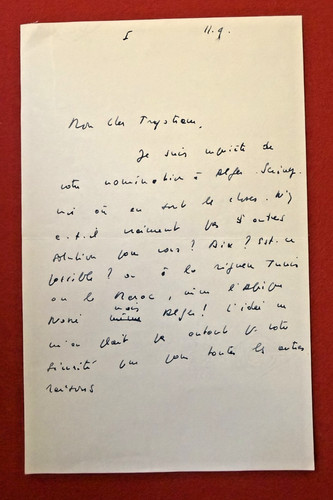 I 11.9.
Mon cher Trystram,
Je suis inquiète de
votre nomination à Alger. Ecrivez
moi où en sont les choses. N'y
a-t-il vraiment pas d'autres
solution pour vous ? Aix ? Est-ce
possible ? ou à la rigueur Tunis
ou le Maroc, même l'Afrique
Noire mais Alger ! L'idée ne
m'en plait pas autant pr votre
sécurité que pour toutes les autres
raisons